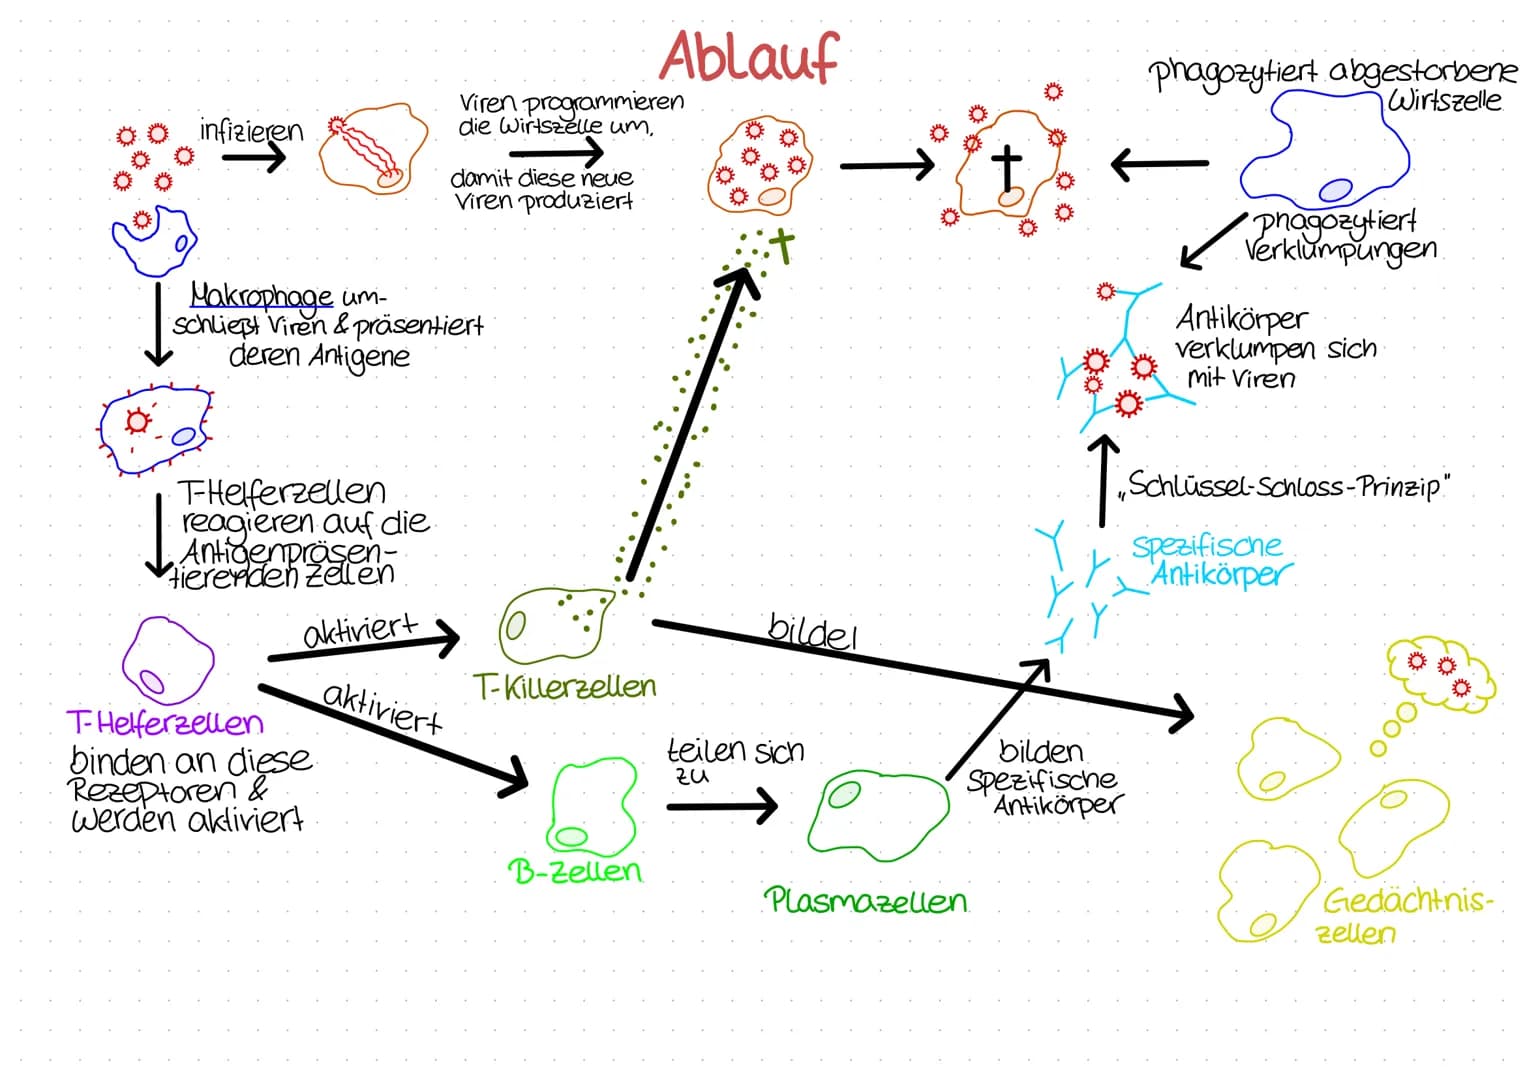 Ablauf
phagozytiert abgestorbene
Wirtszelle
infizieren
Viren programmieren
die Wirtszelle um,
damit diese neue
Viren produziert
phagozytiert
Verklumpungen
Makrophage um-
schließt Viren & präsentiert
deren Antigene
Antikörper
verklumpen sich
mit Viren
T-Helferzellen
reagieren auf die
Antigenpräsen-
tierenden Zellen
„Schlüssel-Schloss-Prinzip"
spezifische
Antikörper
aktiviert
bildet
T-Killerzellen
T-Helferzellen
binden an diese
Rezeptoren &
werden aktiviert
aktiviert
teilen sich
zu
bilden
spezifische
Antikörper
B-Zellen
Plasmazellen
Gedächtnis-
zellen